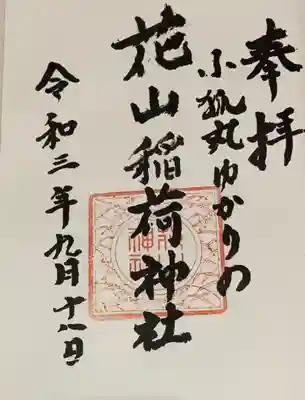 奉拝
小狐丸ゆかりの
花山稲荷神社
令和三年九月十八日